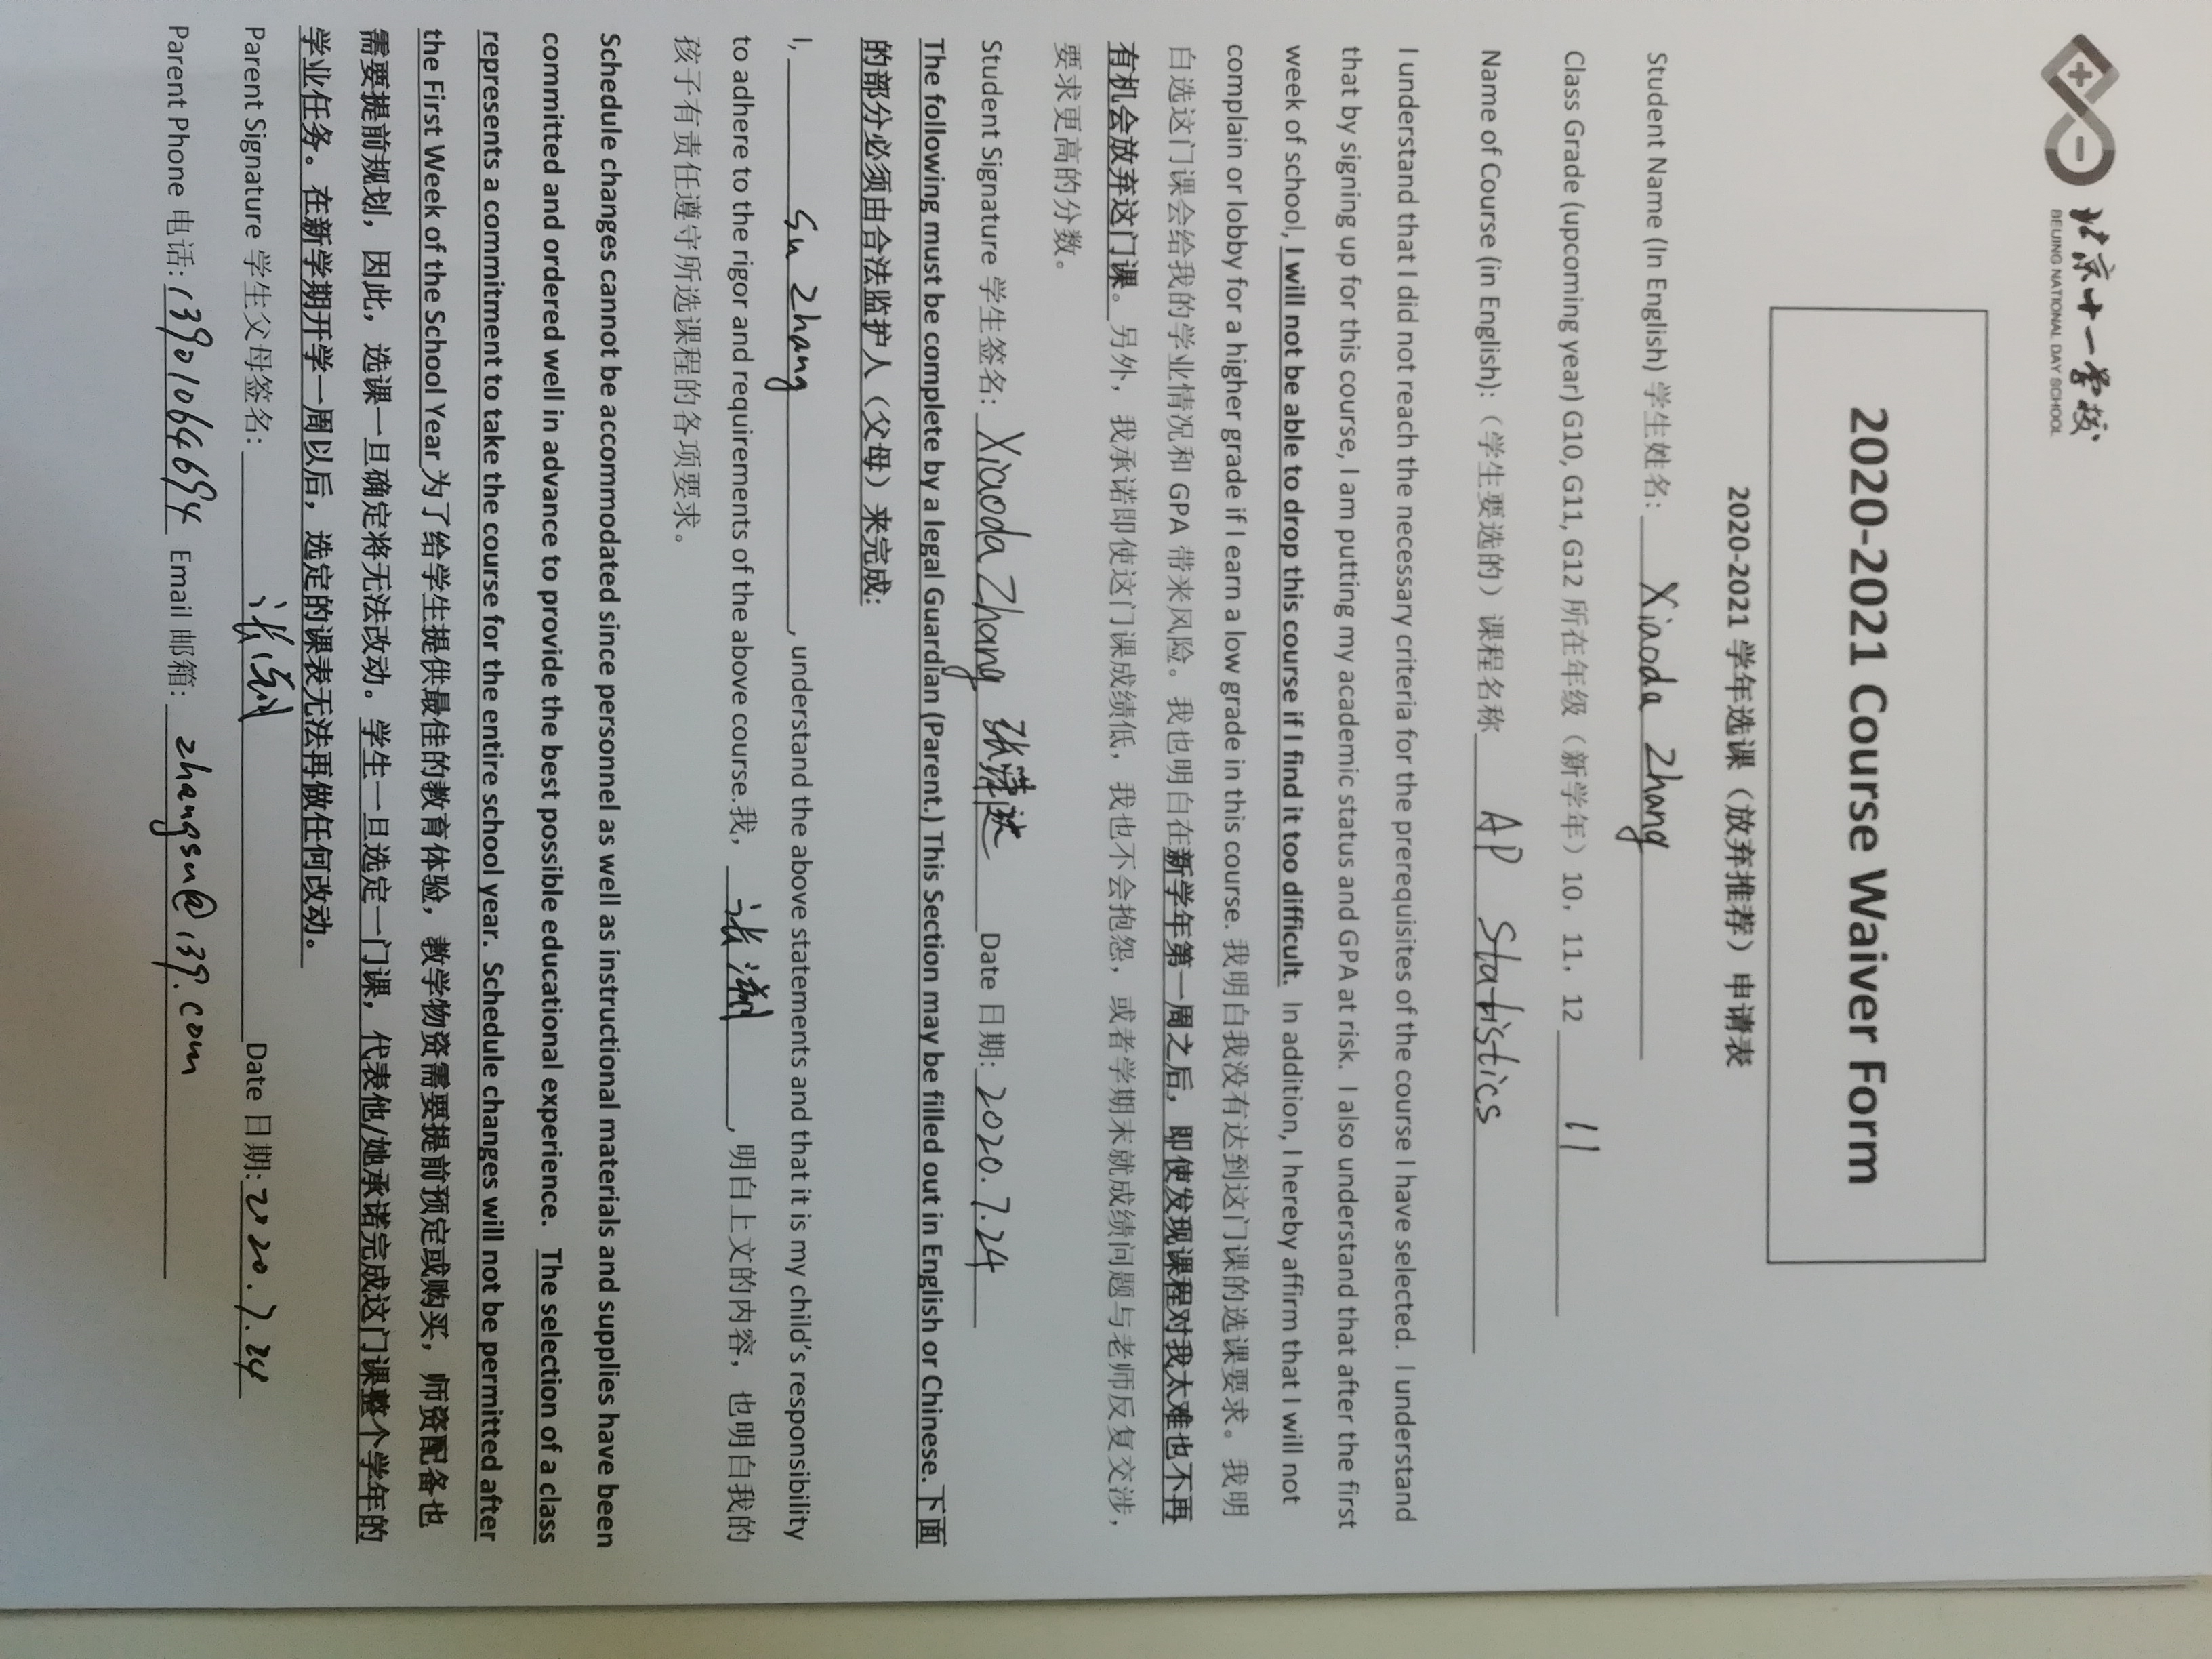 北京十一学校
BEIJING NATIONAL DAY SCHOOL
2020-2021 Course Waiver Form
2020-2021 学年选课（放弃推荐）申请表
Student Name (In English) 学生姓名: Xiaoda Zhang
Class Grade (upcoming year) G10, G11, G12 所在年级（新学年）10，11，12 11
Name of Course (in English):（学生要选的）课程名称 AP Statistics
I understand that I did not reach the necessary criteria for the prerequisites of the course I have selected. I understand
that by signing up for this course, I am putting my academic status and GPA at risk. I also understand that after the first
week of school, I will not be able to drop this course if I find it too difficult. In addition, I hereby affirm that I will not
complain or lobby for a higher grade if I earn a low grade in this course. 我明白我没有达到这门课的选课要求。我明
白选这门课会给我的学业情况和 GPA 带来风险。我也明白在新学年第一周之后，即使发现课程对我太难也不再
有机会放弃这门课。另外，我承诺即使这门课成绩低，我也不会抱怨，或者学期末就成绩问题与老师反复交涉，
要求更高的分数。
Student Signature 学生签名: Xiaoda Zhang 张 达 Date 日期: 2020.7.24
The following must be complete by a legal Guardian (Parent.) This Section may be filled out in English or Chinese.下面
的部分必须由合法监护人（父母）来完成:
I, Su Zhang, understand the above statements and that it is my child's responsibility
to adhere to the rigor and requirements of the above course.我，张 ，明白上文的内容，也明白我的
孩子有责任遵守所选课程的各项要求。
Schedule changes cannot be accommodated since personnel as well as instructional materials and supplies have been
committed and ordered well in advance to provide the best possible educational experience. The selection of a class
represents a commitment to take the course for the entire school year. Schedule changes will not be permitted after
the First Week of the School Year 为了给学生提供最佳的教育体验，教学物资需要提前预定或购买，师资配备也
需要提前规划，因此，选课一旦确定将无法改动。学生一旦选定一门课，代表他/她承诺完成这门课整个学年的
学业任务。在新学期开学一周以后，选定的课表无法再做任何改动。
Parent Signature 学生父母签名: 张 Date 日期: 2020.7.24
Parent Phone 电话: 13901064694 Email 邮箱: zhangsu@139.com